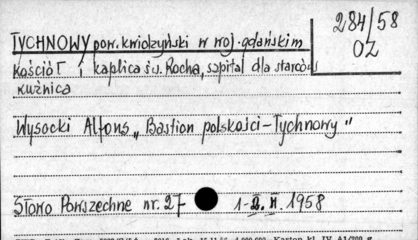 284/58
OZ
TYCHNOWY pow. kwidzyński w woj. gdańskim
Kościół i kaplica św. Rocha, szpital dla starców
kuźnica
Wysocki Alfons „Bastion polskości - Tychnowy"
Słowo Powszechne nr. 27 1-2. II. 1958